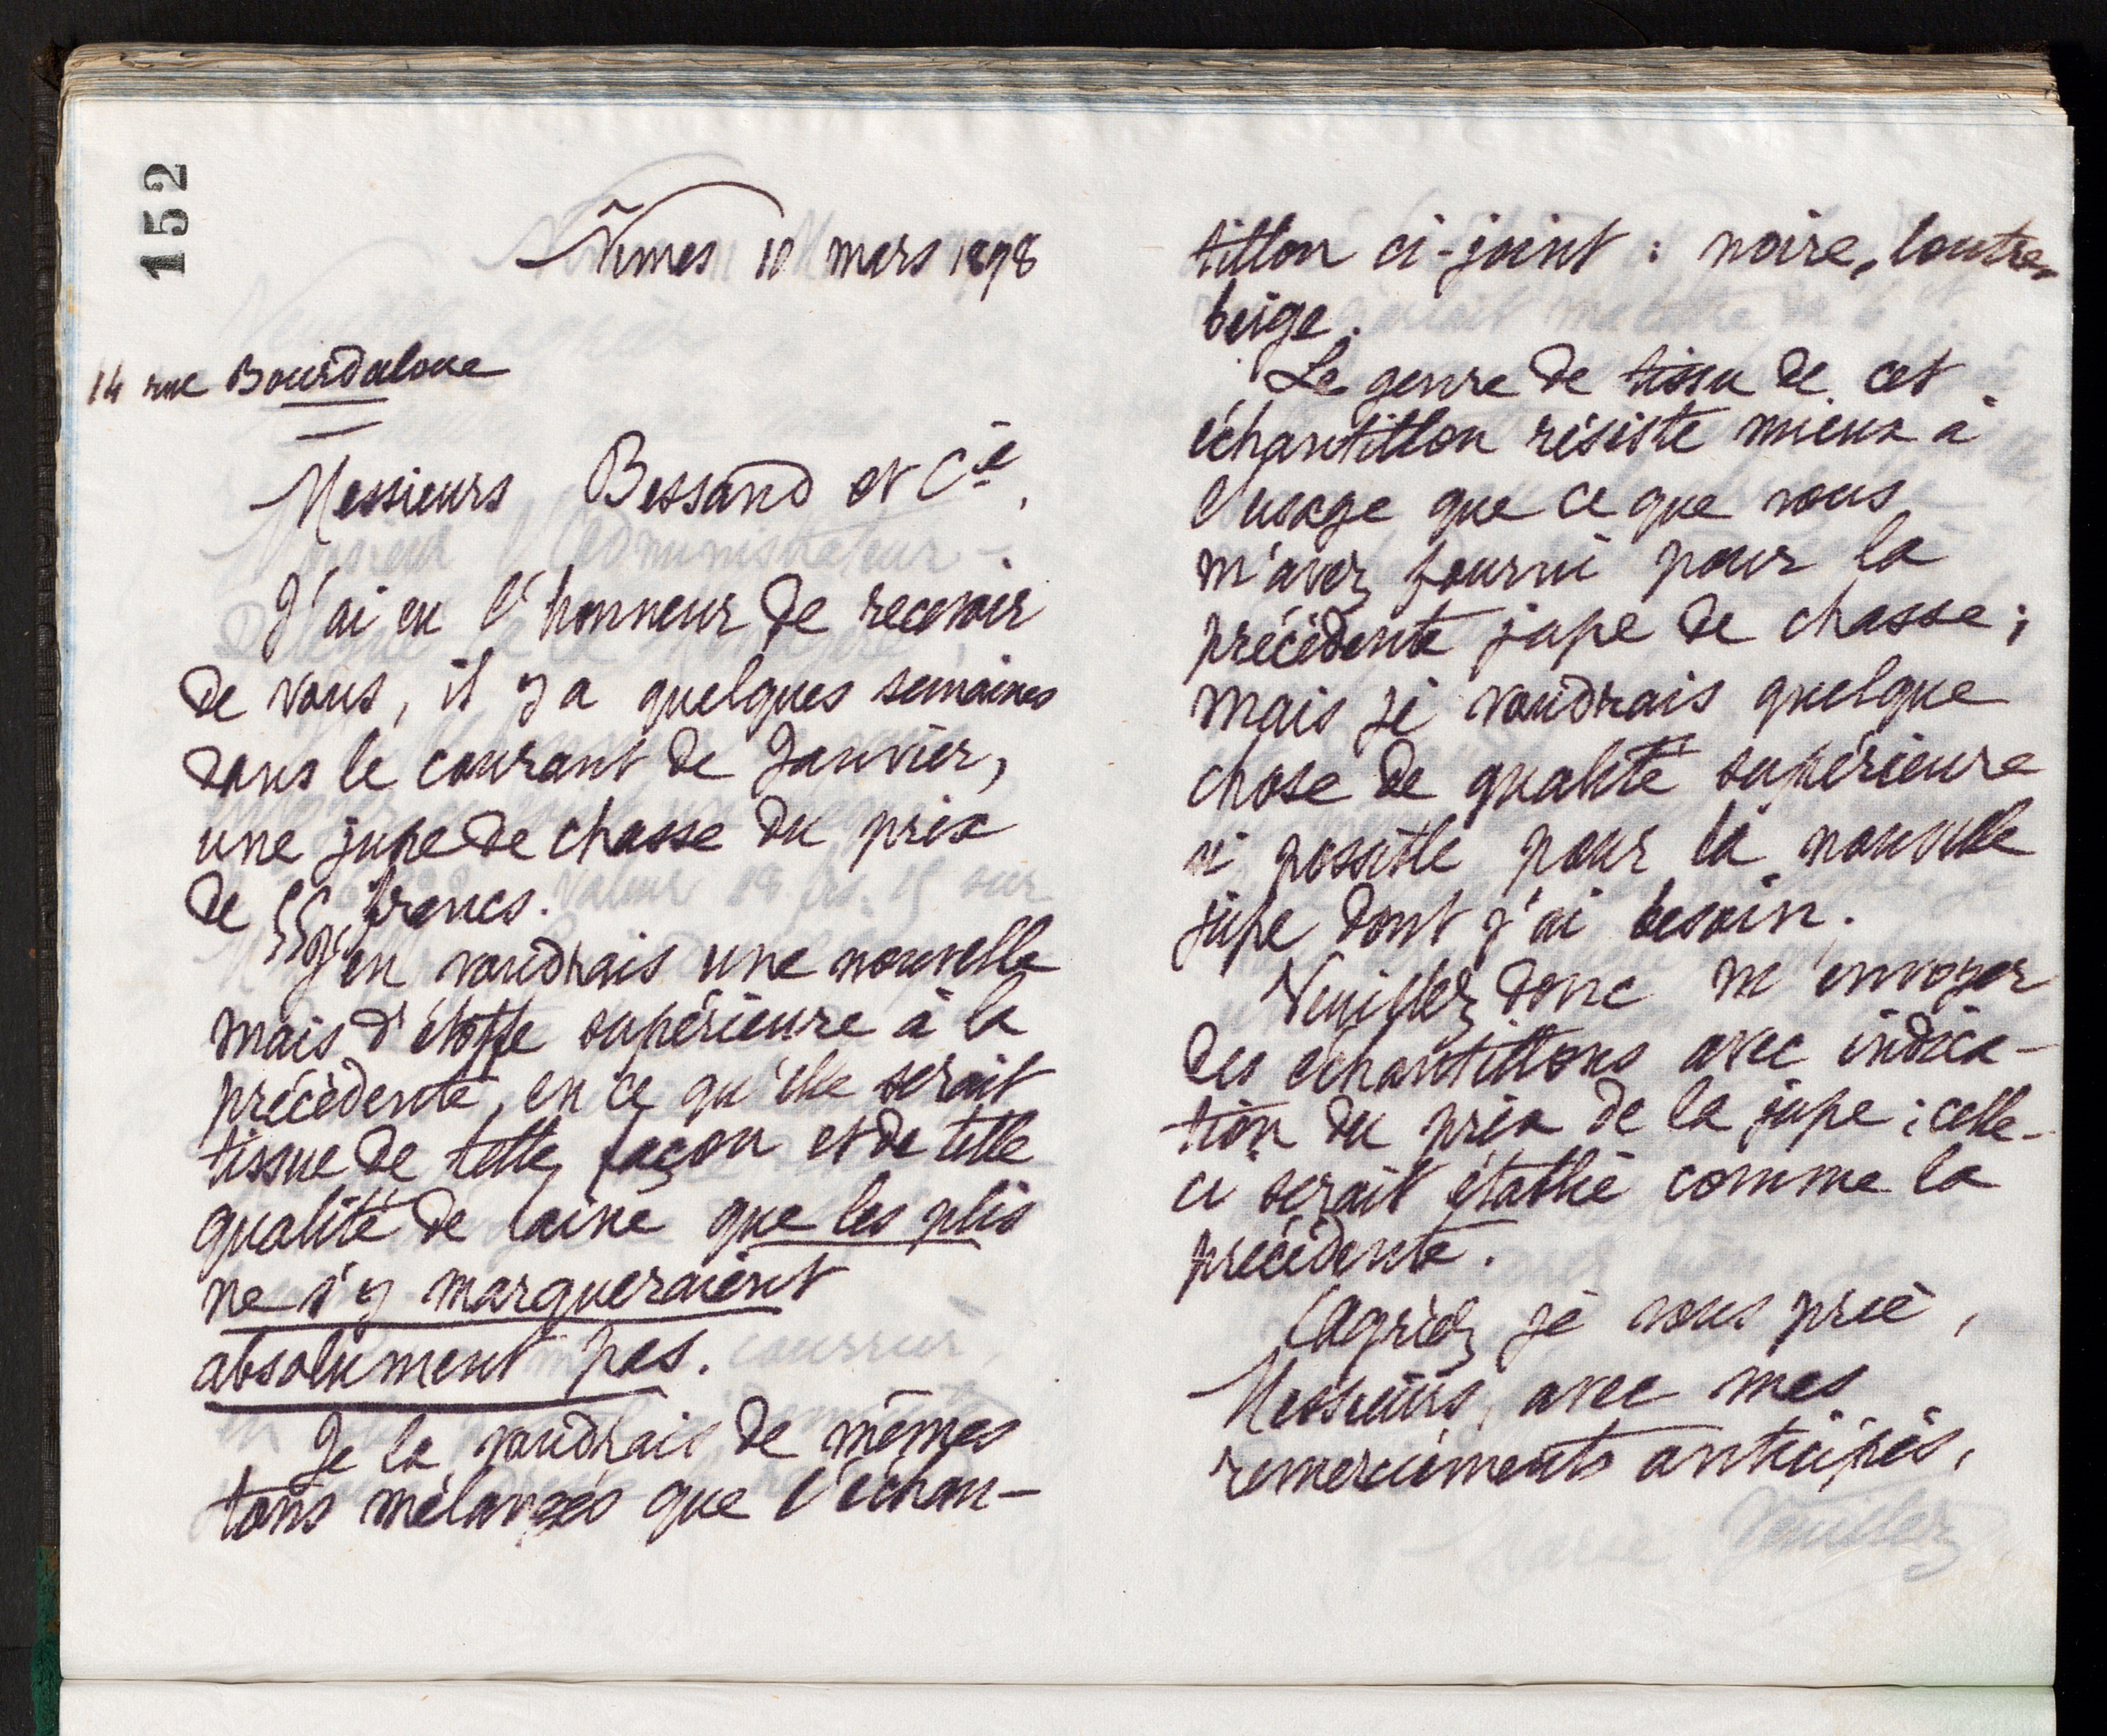 152
Nîmes 10 mars 1898
14 rue Bourdaloue
Messieurs Bessand et Cie,
J'ai eu l'honneur de recevoir
de vous, il y a quelques semaines
dans le courant de Janvier,
une jupe de chasse du prix
de 55 francs.
J'en voudrais une nouvelle
mais d'étoffe supérieure à la
précédente, en ce qu'elle serait
tissue de telle façon et de telle
qualité de laine que les plis
ne s'y marqueraient
absolument pas.
Je la voudrais de mêmes
tons mélangés que l'échan-
tillon ci-joint : noire, loutre,
beige.
Le genre de tissu de cet
échantillon résiste mieux à
l'usage que ce que vous
m'avez fourni pour la
précédente jupe de chasse ;
mais je voudrais quelque
chose de qualité supérieure
si possible pour la nouvelle
jupe dont j'ai besoin.
Veuillez donc m'envoyer
des échantillons avec indica-
tion du prix de la jupe ; celle-
ci serait établie comme la
précédente.
Agréez je vous prie,
Messieurs, avec mes
remerciements anticipés,